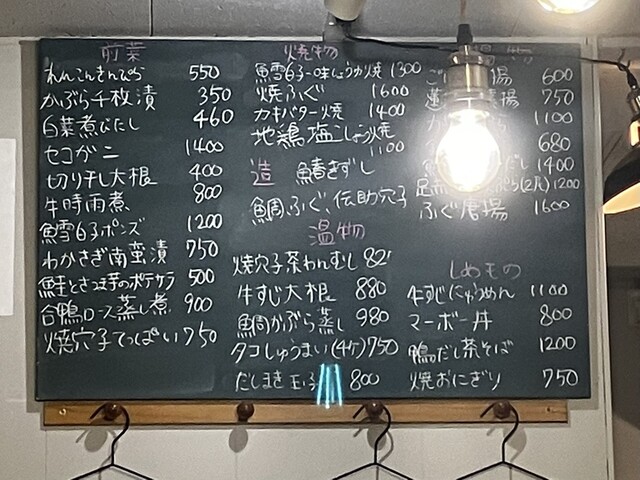 前菜
れんこんきんぴら 550
かぶら千枚漬 350
白菜煮びたし 460
セコガニ 1400
切り干し大根 400
牛時雨煮 800
鱈白子ポンズ 1200
わかさぎ南蛮漬 750
鮭とさつま芋のポテサラ 500
合鴨ロース蒸し煮 900
焼穴子てっぱい 750
焼物
焼 1300
焼ふぐ 1600
カキバター焼 1400
地鶏塩こしょう焼 1100
造
鯖きずし
鯛、ふぐ、伝助穴子
温物
焼穴子茶わんむし 82
牛すじ大根 880
鯛かぶら蒸し 980
タコしゅうまい(4ケ) 750
だしまき玉子 800
物
ご 揚 600
蓮 揚 750
1100
680
だし 1400
(2尾) 1200
ふぐ唐揚 1600
しめもの
牛すじにゅうめん 1100
マーボー丼 800
鴨だし茶そば 1200
焼おにぎり 750